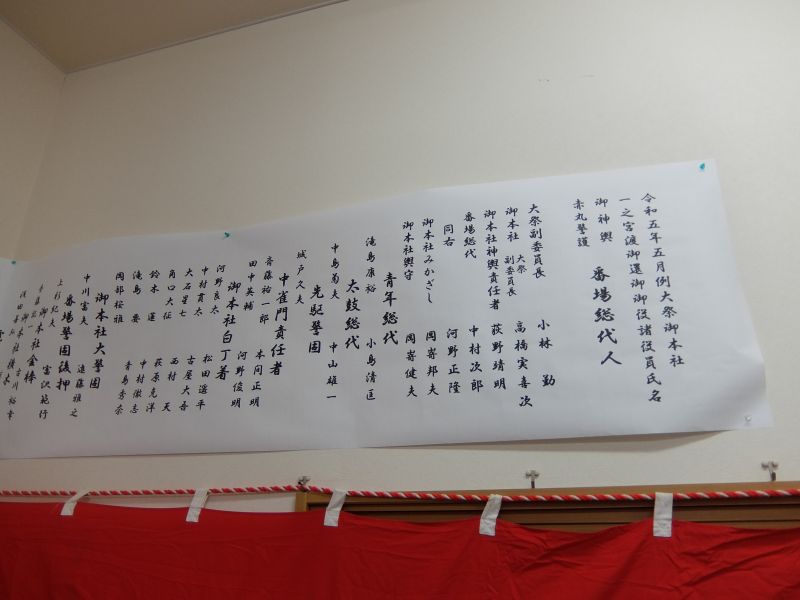 令和五年五月例大祭御本社
一之宮渡御還御御役諸役員氏名
御神輿　番場総代人
赤丸警護
大祭副委員長　小林　勤
御本社　大祭副委員長　高橋実喜次
御本社神輿責任者　荻野靖明
番場総代　中村次郎
同右　河野正隆
御本社みかざし　岡嵜邦夫
御本社輿守　岡嵜健夫
青年総代
滝島康裕　小島清亘
太鼓総代
中島菊夫　中山雄一
先駆警固
城戸久夫
中雀門責任者
斉藤裕一郎　本間正明
田中英輔　河野俊明
御本社白丁着
河野良太　松田遥平
中村貫太　古屋大吾
大石星七　西村　天
角口大征　萩原克洋
鈴木　蓮　中村徹志
滝島　要　青島秀奈
岡部桜雅
御本社大警固
中川富夫　遠藤雅之
番場警固後押
上杉紀夫　富沢範行
御本社金棒